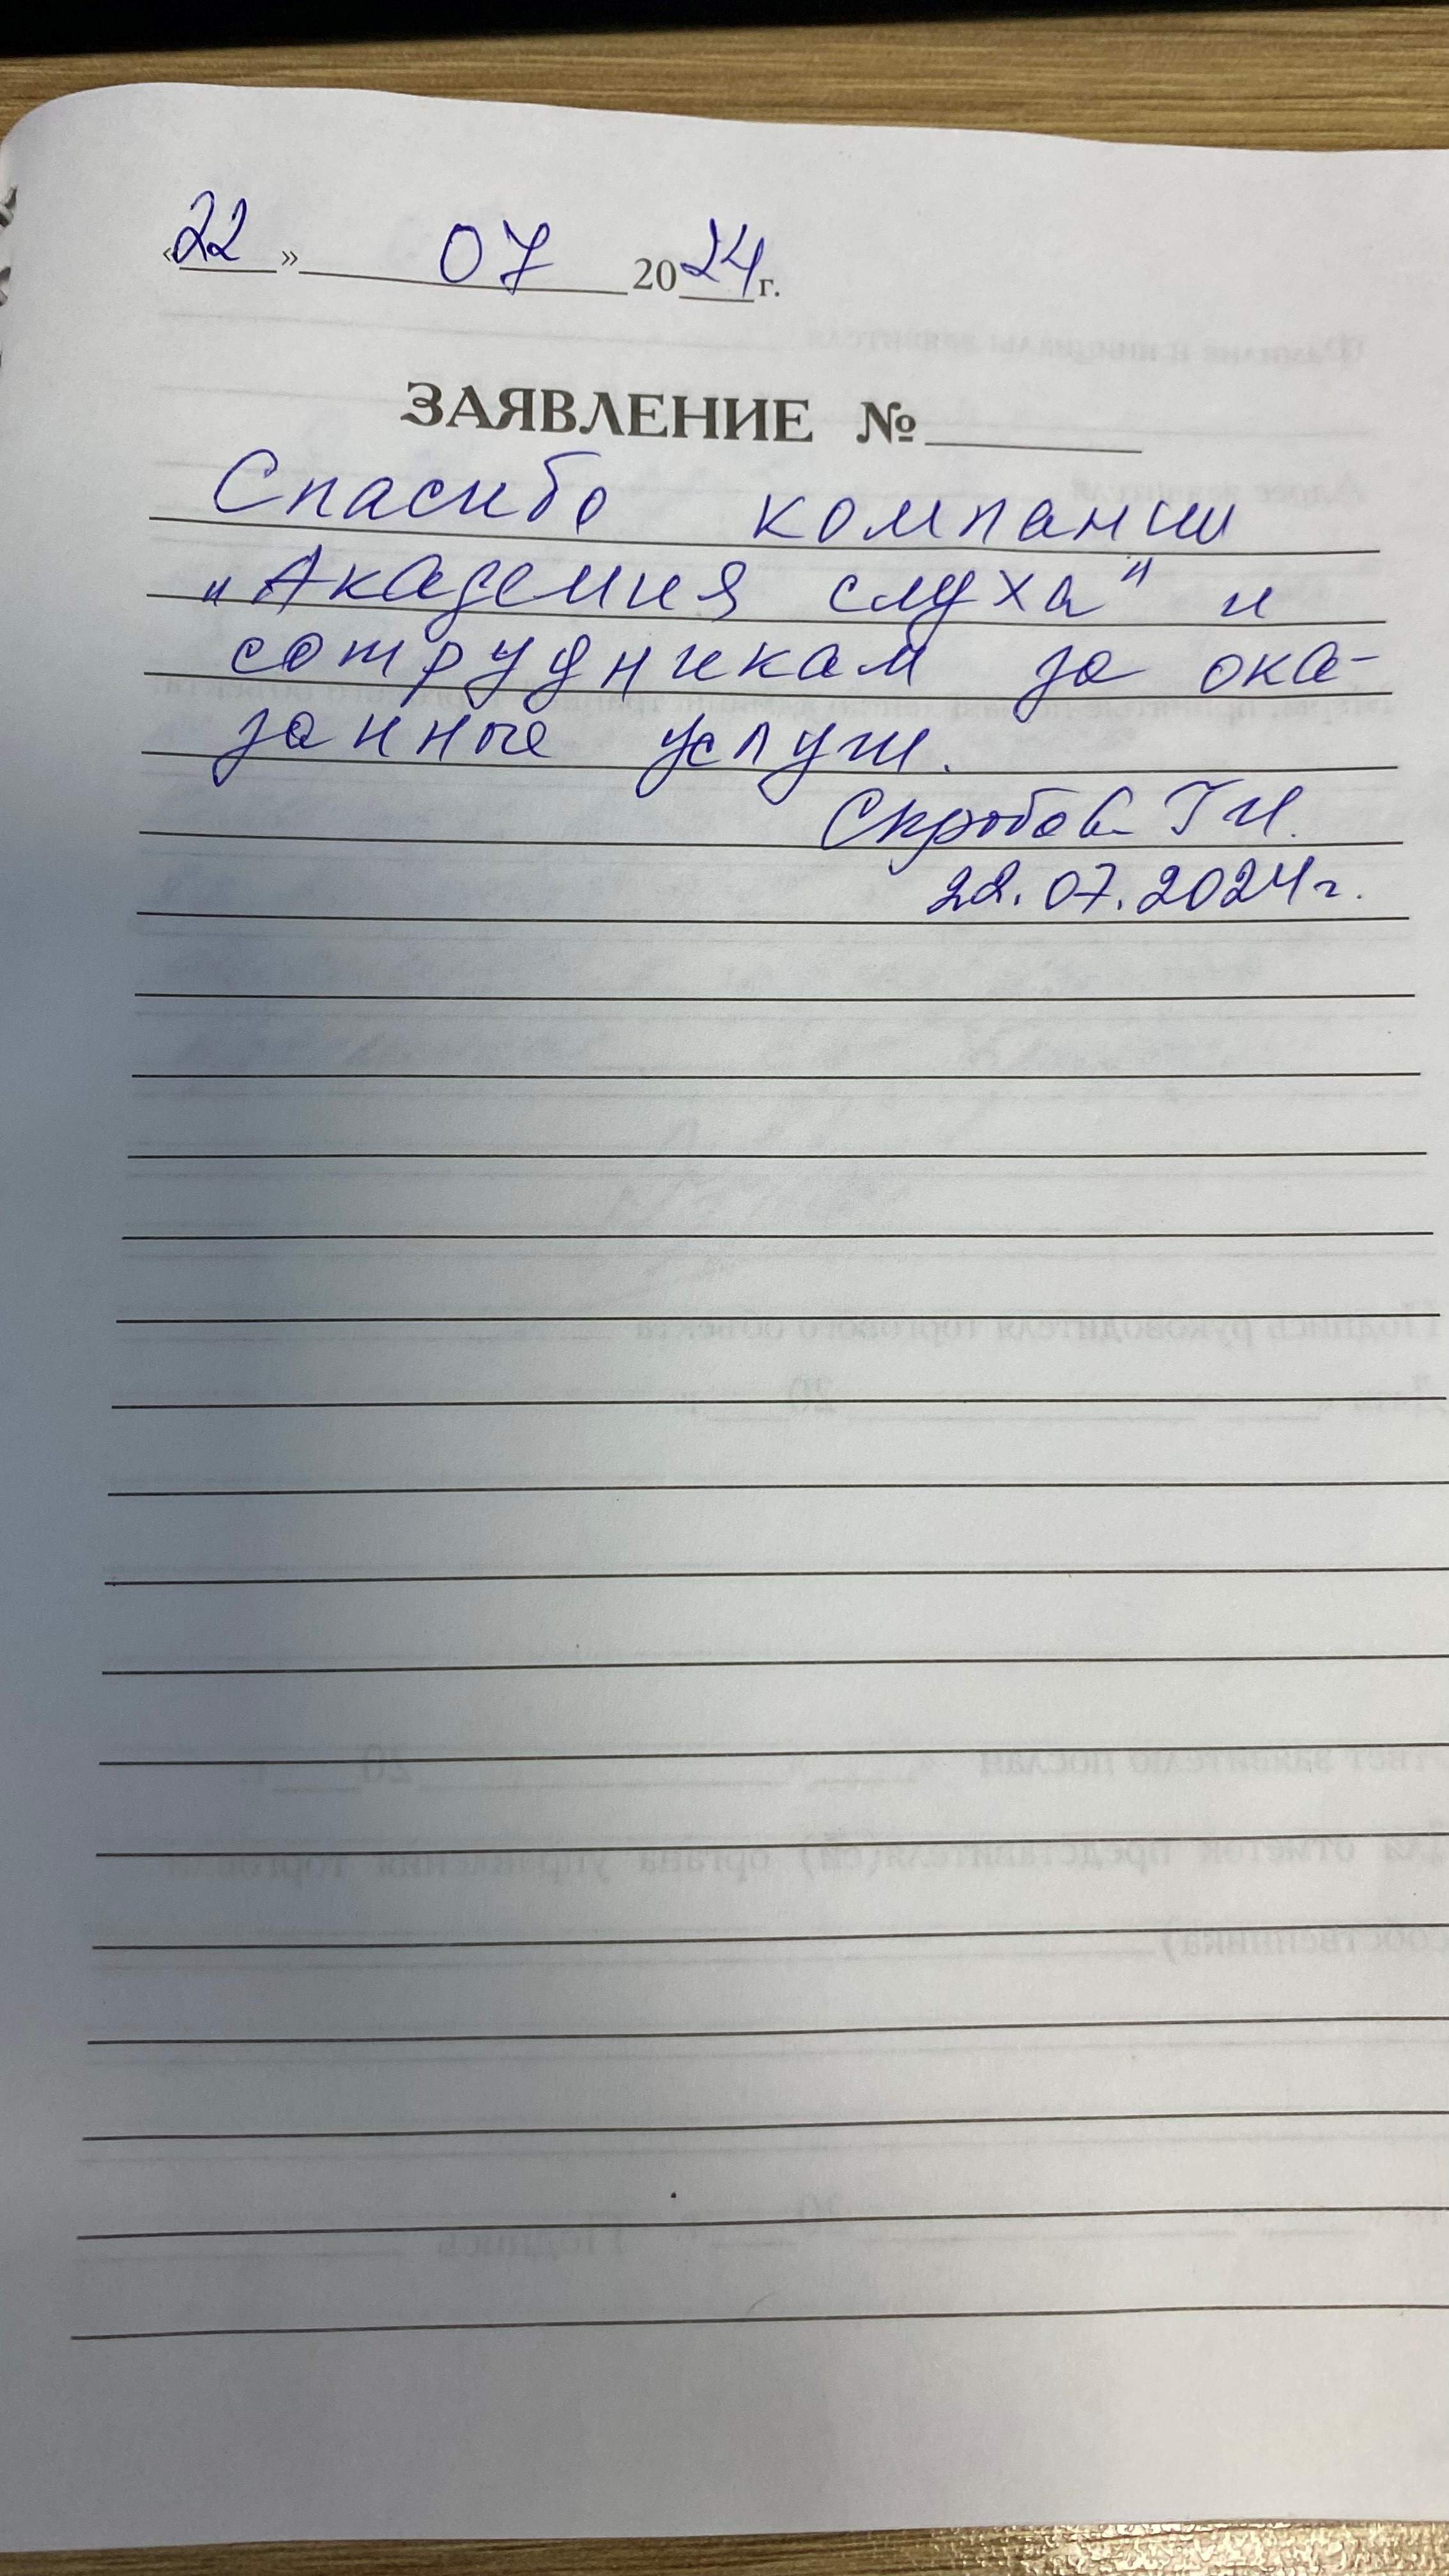 «22» 07 2024 г.
ЗАЯВЛЕНИЕ №
Спасибо компании
„Академия слуха" и
сотрудникам за ока-
занные услуги.
22.07.2024г.